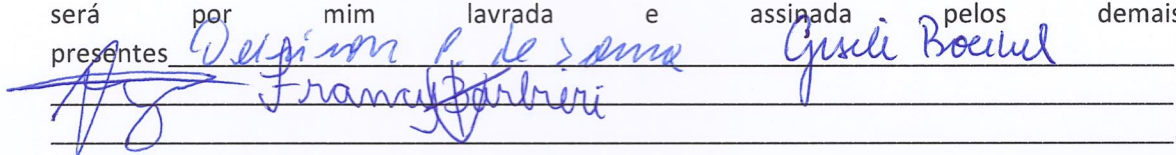 será por mim lavrada e assinada pelos demais
presentes P. de Souza Giseli Boeckel
Francy Barbieri